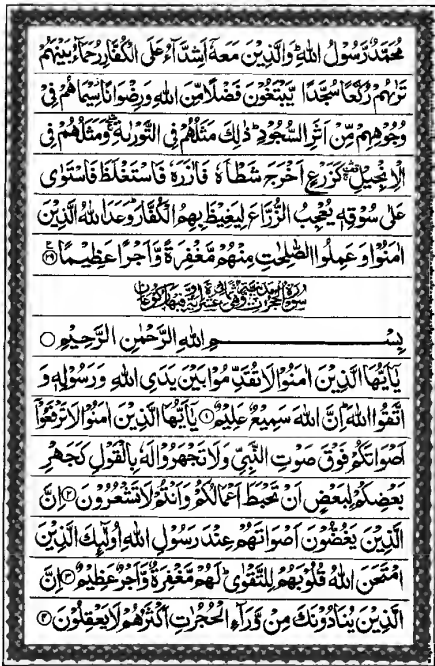 مُحَمَّدٌ رَّسُوْلُ اللّٰهِ ؕ وَالَّذِيْنَ مَعَهٗۤ اَشِدَّآءُ عَلَى الْكُفَّارِ رُحَمَآءُ بَيْنَهُمْ
تَرٰىهُمْ رُكَّعًا سُجَّدًا يَّبْتَغُوْنَ فَضْلًا مِّنَ اللّٰهِ وَرِضْوَانًا سِيْمَاهُمْ فِيْ
وُجُوْهِهِمْ مِّنْ اَثَرِ السُّجُوْدِ ؕ ذٰلِكَ مَثَلُهُمْ فِي التَّوْرٰىةِ ۛۖ وَمَثَلُهُمْ فِي
الْاِنْجِيْلِ ۛۚ كَزَرْعٍ اَخْرَجَ شَطْاَهٗ فَاٰزَرَهٗ فَاسْتَغْلَظَ فَاسْتَوٰى
عَلٰى سُوْقِهٖ يُعْجِبُ الزُّرَّاعَ لِيَغِيْظَ بِهِمُ الْكُفَّارَ ؕ وَعَدَ اللّٰهُ الَّذِيْنَ
اٰمَنُوْا وَعَمِلُوا الصّٰلِحٰتِ مِنْهُمْ مَّغْفِرَةً وَّاَجْرًا عَظِيْمًا ﴿۲۹﴾
بِسْمِ اللّٰهِ الرَّحْمٰنِ الرَّحِيْمِ ○
يٰۤاَيُّهَا الَّذِيْنَ اٰمَنُوْا لَا تُقَدِّمُوْا بَيْنَ يَدَيِ اللّٰهِ وَرَسُوْلِهٖ وَ
اتَّقُوا اللّٰهَ ؕ اِنَّ اللّٰهَ سَمِيْعٌ عَلِيْمٌ ﴿۱﴾ يٰۤاَيُّهَا الَّذِيْنَ اٰمَنُوْا لَا تَرْفَعُوْۤا
اَصْوَاتَكُمْ فَوْقَ صَوْتِ النَّبِيِّ وَلَا تَجْهَرُوْا لَهٗ بِالْقَوْلِ كَجَهْرِ
بَعْضِكُمْ لِبَعْضٍ اَنْ تَحْبَطَ اَعْمَالُكُمْ وَاَنْتُمْ لَا تَشْعُرُوْنَ ﴿۲﴾ اِنَّ
الَّذِيْنَ يَغُضُّوْنَ اَصْوَاتَهُمْ عِنْدَ رَسُوْلِ اللّٰهِ اُولٰٓئِكَ الَّذِيْنَ
امْتَحَنَ اللّٰهُ قُلُوْبَهُمْ لِلتَّقْوٰى ؕ لَهُمْ مَّغْفِرَةٌ وَّاَجْرٌ عَظِيْمٌ ﴿۳﴾ اِنَّ
الَّذِيْنَ يُنَادُوْنَكَ مِنْ وَّرَآءِ الْحُجُرٰتِ اَكْثَرُهُمْ لَا يَعْقِلُوْنَ ﴿۴﴾